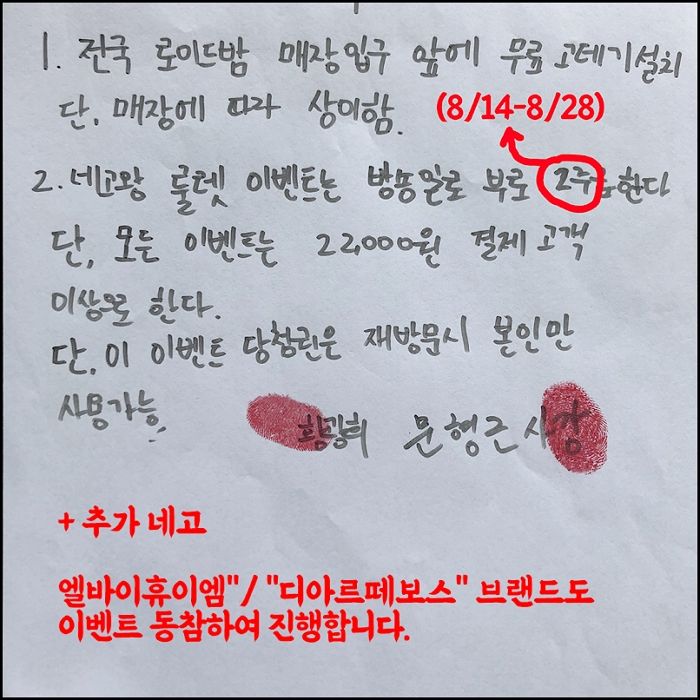 1. 전국 로이드밤 매장입구 앞에 무료 고데기설치
단, 매장에 따라 상이함. (8/14-8/28)
2. 네고왕 룰렛 이벤트는 방송일로 부로 2주 한다
단, 모든 이벤트는 22,000원 결제 고객
이상으로 한다.
단, 이 이벤트 당첨권은 재방문시 본인만
사용가능.
황광희 문형근 사장
+ 추가 네고
엘바이휴이엠"/ "디아르떼보스" 브랜드도
이벤트 동참하여 진행합니다.